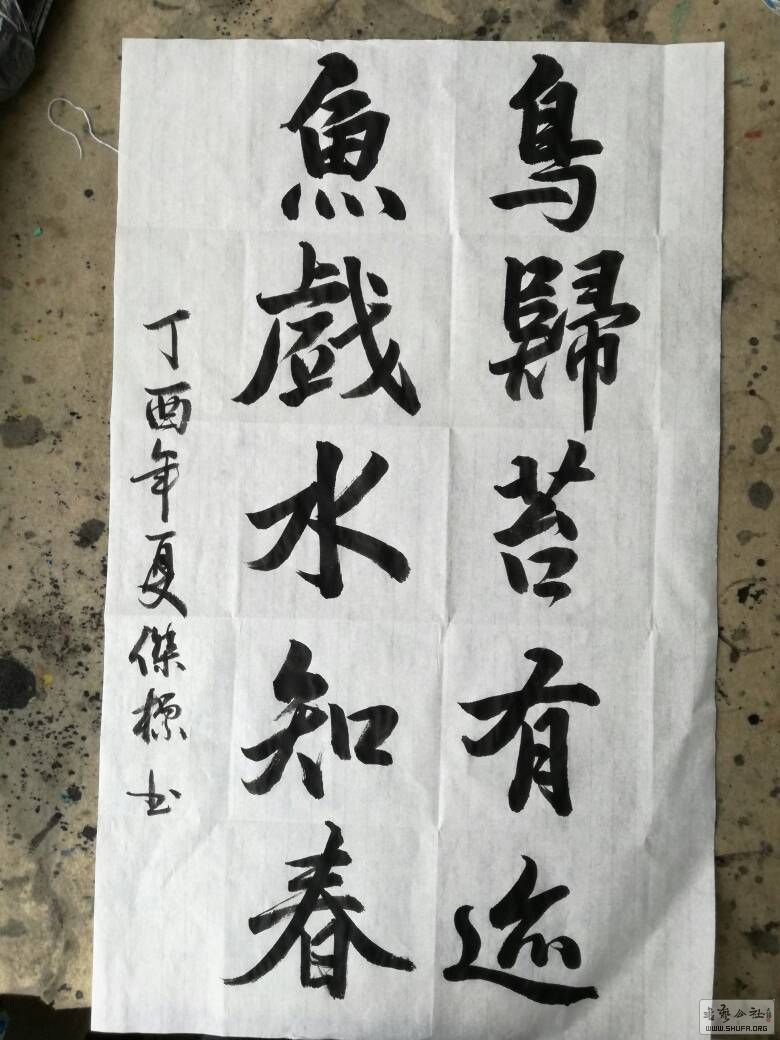 鳥歸苔有迹
魚戲水知春
丁酉年夏傑標书
书艺公社
WWW.SHUFA.ORG